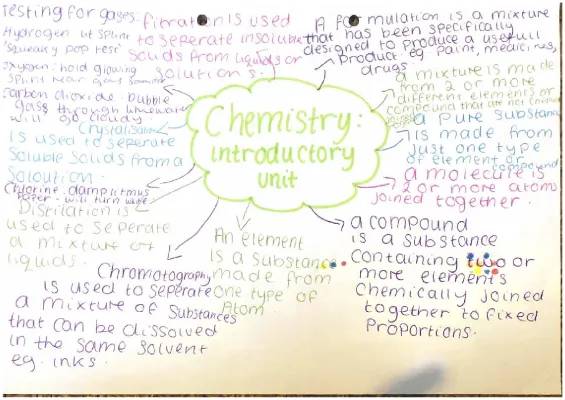 Testing for gases:
Hydrogen: lit splint
'squeaky pop test'
oxygen: hold glowing
splint near
carbon dioxide: bubble
gass through limewater
will go cloudy
Chlorine: damp litmus
paper - will turn white
filtration is used
to seperate insoluble
solids from liquids or
solutions.
A formulation is a mixture
that has been specifically
designed to produce a usefull
product eg paint, medicines,
drugs
a mixture is made
from 2 or more
different elements or
compound that are not
a pure substance
is made from
just one type
of element or
compound
a molecule is
2 or more atoms
joined together.
a compound
is a substance
containing two or
more elements
chemically joined
together to fixed
proportions.
An element
is a substance
made from
one type of
Atom
Chromotography
is used to seperate
a mixture of substances
that can be dissolved
in the same solvent
eg. inks.
Distilation is
used to seperate
a mixture of
liquids.
Crystalisation
is used to seperate
soluble solids from a
solution.
Chemistry:
introductory
unit